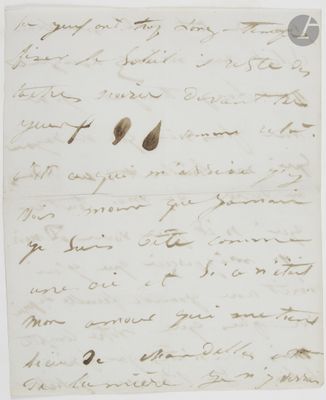 les yeux ont trop long-temps
fixer le Soleil il reste des
taches noires devant les
yeux comme cela.
c'est ce qui m'arrive j'y
vois moins que jamais
je suis bête comme
une oie et si ce n'était
mon amour qui me tient
lieu de chandelle et
de lumière je n'y verrais